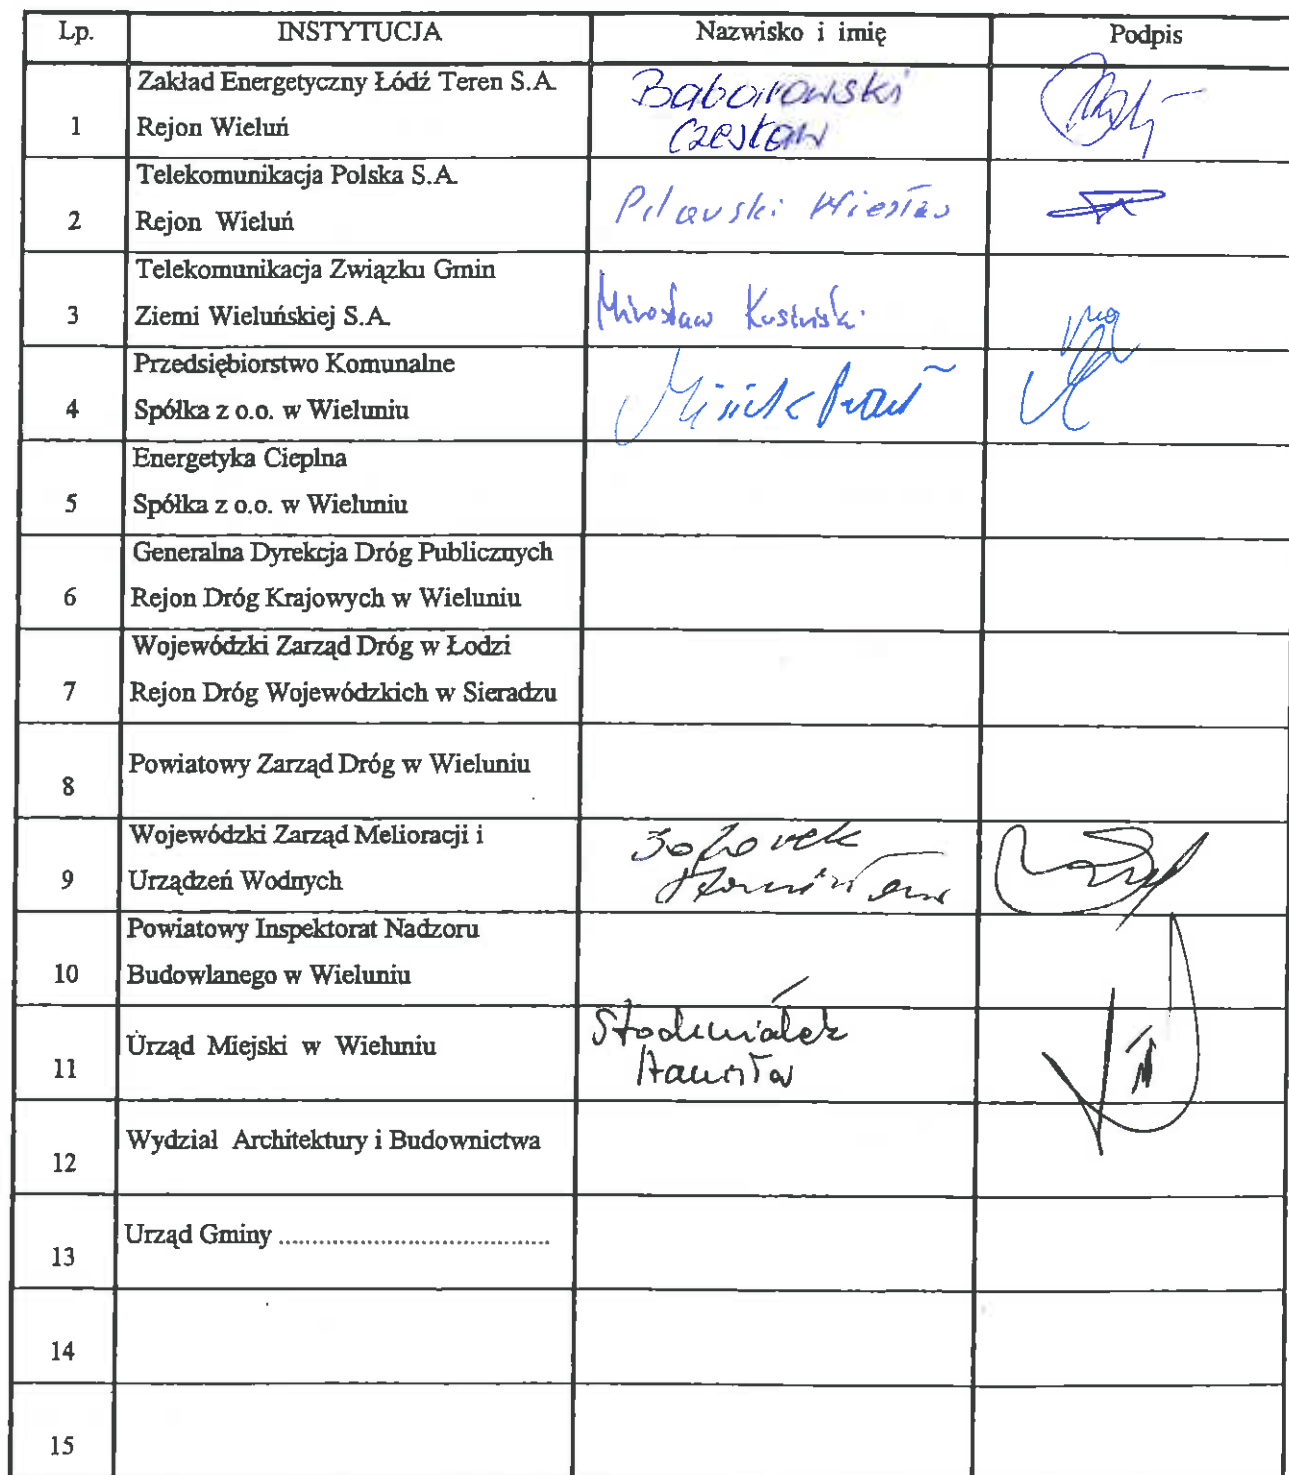 Lp. INSTYTUCJA Nazwisko i imię Podpis
Zakład Energetyczny Łódź Teren S.A.
1 Rejon Wieluń
Baborowski
Czesław
Telekomunikacja Polska S.A.
2 Rejon Wieluń
Wiesław
Telekomunikacja Związku Gmin
3 Ziemi Wieluńskiej S.A.
Mirosław Kusiński
Przedsiębiorstwo Komunalne
4 Spółka z o.o. w Wieluniu
Energetyka Cieplna
5 Spółka z o.o. w Wieluniu
Generalna Dyrekcja Dróg Publicznych
6 Rejon Dróg Krajowych w Wieluniu
Wojewódzki Zarząd Dróg w Łodzi
7 Rejon Dróg Wojewódzkich w Sieradzu
8 Powiatowy Zarząd Dróg w Wieluniu
Wojewódzki Zarząd Melioracji i
9 Urządzeń Wodnych
Powiatowy Inspektorat Nadzoru
10 Budowlanego w Wieluniu
11 Urząd Miejski w Wieluniu
12 Wydział Architektury i Budownictwa
13 Urząd Gminy ......................................
14
15